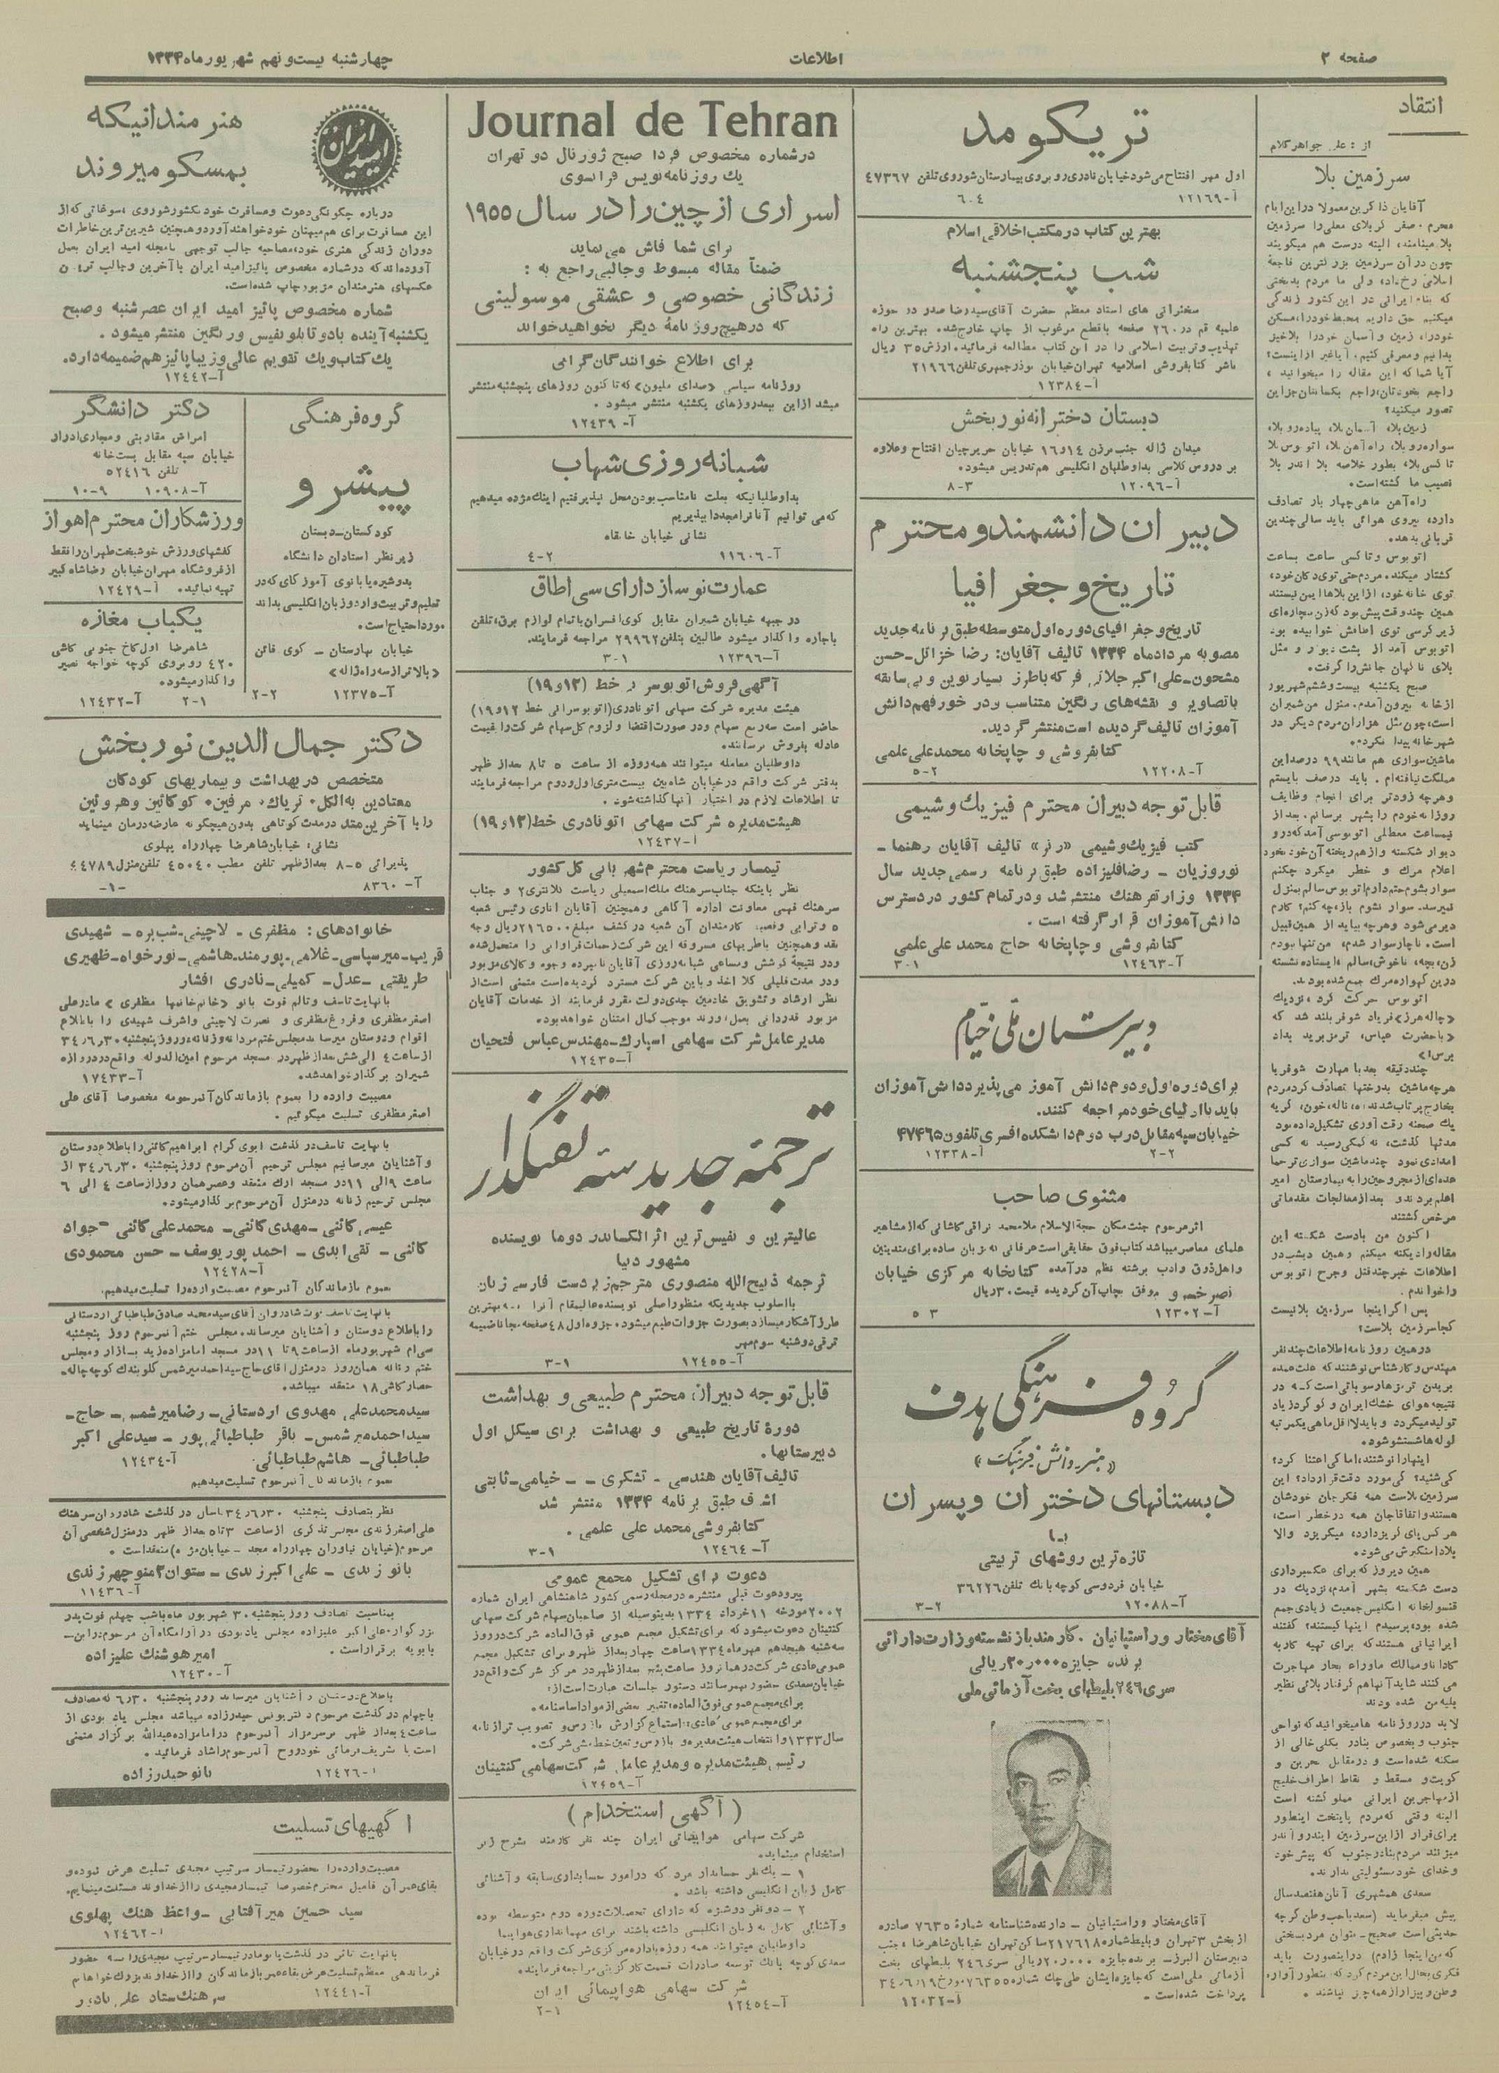 صفحه ۲
اطلاعات
چهارشنبه بیست و نهم شهریور ماه ۱۳۳۴
انتقاد
از : علی جواهر کلام
سرزمین بلا
آقایان ذاکرین معمولا در این ایام
محرم و صفر کربلای معلی را سرزمین
بلا مینامند، البته درست هم میگویند
چون در آن سرزمین بزرگترین فاجعه
اسلامی رخ داد، ولی ما مردم بدبختی
که بنام ایرانی در این کشور زندگی
میکنیم حق داریم محیط خود را، مسکن
خود را، زمین و آسمان خود را بلاخیز
بدانیم و معرفی کنیم. آیا غیر از اینست؟
آیا شما که این مقاله را میخوانید ،
تصور میکنید؟
زمین بلا، آسمان بلا، پیاده رو بلا،
سواره رو بلا، راه آهن بلا، اتوبوس بلا
تاکسی بلا، بطور خلاصه بلا اندر بلا
نصیب ما گشته است.
راه آهن ماهی چهار بار تصادف
دارد، نیروی هوائی باید سالی چندین
قربانی بدهد.
اتوبوس و تاکسی ساعت بساعت
کشتار میکند. مردم حتی توی دکان خود،
توی خانه خود، از این بلاها ایمن نیستند
همین چند وقت پیش بود که زن بیچاره‌ای
زیر کرسی توی اطاقش خوابیده بود
اتوبوس آمد از پشت دیوار و مثل
بلای ناگهان جانش را گرفت.
صبح یکشنبه بیست و ششم شهریور
از خانه بیرون آمدم. منزل من شمیران
است، چون مثل هزاران مردم دیگر در
شهر خانه پیدا نکردم.
ماشین سواری هم مانند ۹۹ درصد این
مملکت نیافته‌ام . باید در صف بایستم
وهرچه زودتر برای انجام وظایف
روزانه خودم را بشهر برسانم. بعد از
نیمساعت معطلی اتوبوسی آمد که در و
دیوار شکسته و از هم ریخته آن خود بخود
اعلام مرگ و خطر میکرد چکنم
اتوبوس حرکت کرد ، نزدیک
«چاله هرز» فریاد شوفر بلند شد که
«یا حضرت عباس، ترمز برید بداد
برس!»
چند دقیقه بعد با مهارت شوفر یا
هرچه ماشین بدرختها تصادف کرد مردم
بخارج پرتاب شدند، ناله، خون، گریه
یک صحنه رقت آوری تشکیل داده بود
مدتها گذشت، نه کمکی رسید نه کسی
امدادی نمود چند ماشین سواری ترحما
عده‌ای از مجروحین را به بیمارستان امیر
اعلم بردند و بعد از معالجات مقدماتی
مرخص گشتند
اکنون من با دست شکسته این
مقاله را دیکته میکنم و همین دیشب در
اطلاعات خبر چند قتل و جرح اتوبوس
را خواندم.
پس اگر اینجا سرزمین بلا نیست
کجا سرزمین بلاست؟
در همین روزنامه اطلاعات چند نفر
مهندس و کارشناس نوشتند که علت عمده
بریدن ترمزها رسوباتی است که در
نتیجه هوای خشک ایران و گرد و گرد زیاد
تولید میگردد و باید لااقل ماهی یکمرتبه
لوله ها شستشو شود.
اینها را نوشتند، اما کی اعتنا کرد؟
کی شنید؟ کی مورد دقت قرار داد؟ این
سرزمین بلاست همه فکر جان خودشان
هستند و اتفاقا جان همه در خطر است،
هر کس پای گریز دارد، میگریزد والا
بلا دامنگیرش می‌شود.
همین دیروز که برای عکسبرداری
دست شکسته بشهر آمدم، نزدیک در
قنسولخانه انگلیس جمعیت زیادی جمع
شده بود، پرسیدم اینها کیستند؟ گفتند
ایرانیانی هستند که برای تهیه کار به
کانادا و ممالک ماوراء بحار مهاجرت
می کنند شاید آنها هم گرفتار بلائی نظیر
بلیه من شده بودند
لابد در روزنامه ها میخوانید که نواحی
جنوب و بخصوص بنادر بکلی خالی از
سکنه شده است و در مقابل بحرین و
کویت و مسقط و نقاط اطراف خلیج
از مهاجرین ایرانی مملو گشته است
البته وقتی که مردم پایتخت اینطور
برای فرار از این سرزمین اینور و آنور
میزنند مردم بنادر جنوب که پیش خود
و خدای خود مسئولیتی ندارند.
سعدی همشهری آنان هفتصد سال
پیش میفرماید (سعدیا حب وطن گرچه
حدیثی است صحیح - نتوان مرد بسختی
که من اینجا زادم) در اینصورت باید
فکری بحال این مردم کرد که بنطور آواره
وطن و بیزار از همه چیز نباشند .
تریکومد
اول مهر افتتاح می‌شود خیابان نادری روبروی بیمارستان شوروی تلفن ۴۷۳۶۷
آ-۱۲۱۶۹ ۶-۴
بهترین کتاب در مکتب اخلاقی اسلام
شب پنجشنبه
سخنرانی های استاد معظم حضرت آقای سید رضا صدر در حوزه
علمیه قم در ۲۶۰ صفحه با قطع مرغوب از چاپ خارج شده. بهترین راه
تهذیب و تربیت اسلامی را در این کتاب مطالعه فرمائید. ارزش ۳۵ ریال
ناشر کتابفروشی اسلامیه تهران خیابان بوذرجمهری تلفن ۲۱۹۶۶
آ-۱۲۳۸۴
دبستان دخترانه نوربخش
میدان ژاله جنب برزن ۱۴ و ۱۶ خیابان حریرچیان افتتاح و علاوه
بر دروس کلاسی بداوطلبان انگلیسی هم تدریس میشود.
آ-۱۲۰۹۶ ۸-۳
دبیران دانشمند و محترم
تاریخ و جغرافیا
تاریخ و جغرافیای دوره اول متوسطه طبق برنامه جدید
مصوبه مرداد ماه ۱۳۳۴ تالیف آقایان: رضا خزائل-حسن
مشحون-علی اکبر جلائی فر که با طرز بسیار نوین و بی سابقه
با تصاویر و نقشه های رنگین متناسب و در خور فهم دانش
آموزان تالیف گردیده است منتشر گردید.
کتابفروشی و چاپخانه محمد علی علمی
آ-۱۲۲۰۸ ۵-۲
قابل توجه دبیران محترم فیزیک و شیمی
کتب فیزیک و شیمی «رنر» تالیف آقایان رهنما -
نوروزیان - رضاقلیزاده طبق برنامه رسمی جدید سال
۱۳۳۴ وزارت فرهنگ منتشر شد و در تمام کشور در دسترس
دانش آموزان قرار گرفته است .
کتابفروشی و چاپخانه حاج محمد علی علمی
آ-۱۲۴۶۳ ۳-۱
دبیرستان ملی خیام
برای دوره اول و دوم دانش آموز می پذیرد دانش آموزان
باید با اولیای خود مراجعه کنند.
خیابان سپه مقابل درب دوم دانشکده افسری تلفون ۴۷۴۶۵
آ-۱۲۳۳۸ ۲-۲
مثنوی صاحب
اثر مرحوم جنت مکان حجة الاسلام ملا محمد نراقی کاشانی که از مشاهیر
علمای معاصر میباشد کتاب فوق حقایقی است عرفانی که بزبان ساده برای متدینین
و اهل ذوق و ادب برشته نظم در آمده کتابخانه مرکزی خیابان
ناصر خسرو موفق بچاپ آن گردیده قیمت ۳۰ ریال
آ-۱۲۳۰۲ ۵ ۳
گروه فرهنگی هدف
«هنر - دانش - فرهنگ»
دبستانهای دختران و پسران
با
تازه ترین روشهای تربیتی
خیابان فردوسی کوچه بانک تلفن ۳۶۲۲۶
آ-۱۲۰۸۸ ۳-۲
آقای مختار وراستیانیان . کارمند بازنشسته وزارت دارائی
برنده جایزه ۲۰٫۰۰۰ ریالی
سری ۲۴۶ بلیطهای بخت آزمائی ملی
آقای مختار وراستیانیان - دارنده شناسنامه شمارهٔ ۷۶۳۵ صادره
از بخش ۳ تهران و بلیط شماره ۲۱۷۶۱۸ ساکن تهران خیابان شاهرضا ، جنب
دبیرستان البرز - برنده جایزه ۲۰٫۰۰۰ ریالی سری ۲۴۶ بلیطهای بخت
آزمائی ملی است که جایزه ایشان طی چک شماره ۷۶۳۵۵۰ مورخ ۳۴/۶/۱۹
پرداخت شده است -
آ-۱۲۰۳۲
Journal de Tehran
در شماره مخصوص فردا صبح ژورنال دو تهران
یک روزنامه نویس فرانسوی
اسراری از چین را در سال ۱۹۵۵
برای شما فاش می نماید
ضمناً مقاله مبسوط و جالبی راجع به :
زندگانی خصوصی و عشقی موسولینی
که در هیچ روزنامهٔ دیگر نخواهید خواند
برای اطلاع خوانندگان گرامی
روزنامه سیاسی «صدای ملیون» که تاکنون روزهای پنجشنبه منتشر
میشد از این ببعد روزهای یکشنبه منتشر میشود .
آ-۱۲۴۳۹
شبانه روزی شهاب
بداوطلبانیکه بعلت نامناسب بودن محل نپذیرفتیم اینک مژده میدهیم
که می توانیم آنانرا مجددا بپذیریم
نشانی خیابان خانقاه
آ-۱۱۶۰۶ ۴-۲
عمارت نوساز دارای سی اطاق
در جبهه خیابان شمیران مقابل کوی افسران با تمام لوازم برق، تلفن
باجاره واگذار میشود طالبین بتلفن ۲۹۹۶۲ مراجعه فرمایند.
آ-۱۲۳۹۶ ۳-۱
آگهی فروش اتوبوس در خط (۱۲ و ۱۹)
هیئت مدیره شرکت سهامی اتو نادری (اتوبوسرانی خط ۱۲ و ۱۹)
حاضر است سه ربع سهام و در صورت اقتضا و لزوم کل سهام شرکت را بقیمت
عادله بفروش برسانند.
داوطلبان معامله میتوانند همه روزه از ساعت ۵ تا ۸ بعد از ظهر
بدفتر شرکت واقع در خیابان شاه بین بیست متری اول و دوم مراجعه فرمایند
تا اطلاعات لازم در اختیار آنها گذاشته شود.
هیئت مدیره شرکت سهامی اتو نادری خط (۱۲ و ۱۹)
آ-۱۲۴۳۷
تیمسار ریاست محترم شهربانی کل کشور
نظر باینکه جناب سرهنگ ملک اسمعیلی ریاست کلانتری ۲ و جناب
سرهنگ فهیمی معاونت اداره آگاهی و همچنین آقایان اناری رئیس شعبه
۵ و ترابی و نصیب کارمندان آن شعبه در کشف مبلغ ۲۱۶۵۰۰ ریال وجه
نقد و همچنین باطریهای مسروقه این شرکت زحمات فراوانی را متحمل شده
و در نتیجهٔ کوشش و مساعی شبانه روزی آقایان نامبرده وجوه و کالای مزبور
در مدت قلیلی کلا اخذ و باین شرکت مسترد گردیده است متمنی است از
نظر ارشاد و تشویق خادمین جدی دولت مقرر فرمایند از خدمات آقایان
مزبور قدردانی بعمل آورند موجب کمال امتنان خواهد بود.
مدیر عامل شرکت سهامی اسپارک - مهندس عباس فتحیان
آ-۱۲۴۳۵
ترجمه جدید سه تفنگدار
عالیترین و نفیس ترین اثر الکساندر دوما نویسنده
مشهور دنیا
ترجمه ذبیح الله منصوری مترجم زبردست فارسی زبان
با اسلوب جدیدیکه منظور اصلی نویسنده عالیمقام آنرا به بهترین
طرز آشکار میسازد بصورت جزوات طبع میشود. جزوه اول ۴۸ صفحه مجانا ضمیمه
ترقی دوشنبه سوم مهر
آ-۱۲۴۵۵ ۳-۱
قابل توجه دبیران محترم طبیعی و بهداشت
دورهٔ تاریخ طبیعی و بهداشت برای سیکل اول
دبیرستانها.
تالیف آقایان هندسی - تشکری - - خیامی - ثابتی
اشرف طبق برنامه ۱۳۳۴ منتشر شد
کتابفروشی محمد علی علمی .
آ-۱۲۴۶۴ ۳-۱
دعوت برای تشکیل مجمع عمومی
پیرو دعوت قبلی منتشره در مجله رسمی کشور شاهنشاهی ایران شماره
۲۰۰۲ مورخه ۱۱ خرداد ۱۳۳۴ بدینوسیله از صاحبان سهام شرکت سهامی
کنتینان دعوت میشود که برای تشکیل مجمع عمومی فوق العاده شرکت در روز
سه شنبه هیجدهم مهر ماه ۱۳۳۴ ساعت چهار بعد از ظهر و برای تشکیل مجمع
عمومی عادی شرکت در همان روز ساعت پنج بعد از ظهر در مرکز شرکت واقع در
خیابان سعدی حضور بهمرسانند دستور جلسات عبارت است از:
برای مجمع عمومی فوق العاده: تغییر بعضی از مواد اساسنامه.
برای مجمع عمومی عادی: استماع گزارش بازرس و تصویب ترازنامه
سال ۱۳۳۳ و انتخاب هیئت مدیره و بازرس و تعیین خط مشی شرکت.
رئیس هیئت مدیره و مدیر عامل شرکت سهامی کنتینان
آ-۱۲۴۵۹
( آگهی استخدام )
شرکت سهامی هواپیمائی ایران چند نفر کارمند بشرح زیر
استخدام مینماید.
۱ - یک نفر حسابدار مرد که در امور حسابداری سابقه و آشنائی
کامل بزبان انگلیسی داشته باشد .
۲ - دو نفر دوشیزه که دارای تحصیلات دوره دوم متوسطه بوده
و آشنائی کامل به زبان انگلیسی داشته باشند برای مهمانداری هواپیما
داوطلبان میتوانند همه روزه باداره مرکزی شرکت واقع در خیابان
سعدی کوچه بانک توسعه صادرات قسمت کارگزینی مراجعه فرمایند.
شرکت سهامی هواپیمائی ایران
آ-۱۲۴۵۴ ۲-۱
امید ایران
هنرمندانیکه
بمسکو میروند
درباره چگونگی دعوت و مسافرت خود بکشور شوروی ، سوغاتی که از
این مسافرت برای هم میهنان خود خواهند آورد و همچنین شیرین ترین خاطرات
دوران زندگی هنری خود، مصاحبه جالب توجهی با مجله امید ایران بعمل
آورده‌اند که در شماره مخصوص پائیز امید ایران با آخرین و جالب ترین
عکسهای هنرمندان مزبور چاپ شده است.
شماره مخصوص پائیز امید ایران عصر شنبه و صبح
یکشنبه آینده با دو تابلو نفیس و رنگین منتشر میشود .
یک کتاب و یک تقویم عالی و زیبا پائیز هم ضمیمه دارد.
آ-۱۲۴۴۲
گروه فرهنگی
پیشرو
کودکستان-دبستان
زیر نظر استادان دانشگاه
بدوشیزه یا بانوی آموزگاری که در
تعلیم و تربیت وارد و زبان انگلیسی بداند
مورد احتیاج است.
خیابان بهارستان - کوی فاتن
«بالاتر از سه راه ژاله»
آ-۱۲۳۷۵ ۲-۲
دکتر دانشگر
امراض مقاربتی و مجاری ادرار
خیابان سپه مقابل پست خانه
تلفن ۵۲۴۱۶
آ-۱۰۹۰۸ ۱۰-۹
ورزشکاران محترم اهواز
کفشهای ورزش خوشبخت طهران را فقط
از فروشگاه مهران خیابان رضا شاه کبیر
تهیه نمائید. آ-۱۲۴۲۹
یکباب مغازه
شاهرضا اول کاخ جنوبی کاشی
۴۲۰ روبروی کوچه خواجه نصیر
واگذار میشود.
آ-۱۲۴۳۲ ۲-۱
دکتر جمال الدین نوربخش
متخصص در بهداشت و بیماریهای کودکان
معتادین به الکل، تریاک، مرفین، کوکائین و هروئین
را با آخرین متد در مدت کوتاهی بدون هیچگونه عارضه درمان مینماید
نشانی: خیابان شاهرضا چهارراه پهلوی
پذیرائی ۵-۸ بعد از ظهر تلفن مطب ۴۵۰۴۰ تلفن منزل ۴۷۸۹
آ-۸۳۶۰ -۱-
خانواده‌های: مظفری - لاچینی - شب بره - شهیدی
قریب - میرسپاسی - غلامی - پورمند - هاشمی - نورخواه - ظهیری
طریقتی - عدل - کمیلی - نادری افشار
با نهایت تاسف و تالم فوت بانو «خانم خانمها مظفری» مادر علی
اصغر مظفری و فروغ مظفری و نصرت لاچینی و اشرف شهیدی را باطلاع
اقوام و دوستان میرساند مجلس ختم مردانه و زنانه روز پنجشنبه ۳۴/۶/۳۰
از ساعت ۴ الی شش بعد از ظهر در مسجد مرحوم امین الدوله واقع در دروازه
شمیران برگذار خواهد شد. آ-۱۷۴۳۳
مصیبت وارده را بعموم بازماندگان آنمرحومه مخصوصا آقای علی
اصغر مظفری تسلیت میگوئیم .
با نهایت تاسف درگذشت ابوی گرام ابراهیم کائنی را باطلاع دوستان
و آشنایان میرسانیم مجلس ترحیم آن مرحوم روز پنجشنبه ۳۴/۶/۳۰ از
ساعت ۹ الی ۱۱ در مسجد ارک منعقد و عصر همان روز از ساعت ۴ الی ۶
مجلس ترحیم زنانه در منزل آن مرحوم برگذار میشود.
عیسی کائنی - مهدی کائنی - محمد علی کائنی - جواد
کائنی - تقی ابدی - احمد پور یوسف - حسن محمودی
آ-۱۲۴۲۸
عموم بازماندگان آنمرحوم مصیبت وارده را تسلیت میدهیم.
با نهایت تاسف فوت شادروان آقای سید محمد صادق طباطبائی اردستانی
را باطلاع دوستان و آشنایان میرساند. مجلس ختم آنمرحوم روز پنجشنبه
سی ام شهریور ماه از ساعت ۹ تا ۱۱ در مسجد امامزاده زید بازار و مجلس
ختم زنانه همان روز در منزل آقای حاج سید احمد میرشمس گلوبندک کوچه چاله
حصار کاشی ۱۸ منعقد میباشد.
سید محمد علی مهدوی اردستانی - رضا میرشمس - حاج
سید احمد میرشمس - باقر طباطبائی پور - سید علی اکبر
طباطبائی - هاشم طباطبائی آ-۱۲۴۳۴
عموم بازماندگان آنمرحوم تسلیت میدهیم
نظر بتصادف پنجشنبه ۳۴/۶/۳۰ با سال درگذشت شادروان سرهنگ
علی اصغر زندی مجلس تذکری از ساعت ۳ تا ۵ بعد از ظهر در منزل شخصی آن
بانو زندی - علی اکبر زندی - ستوان ۲ منوچهر زندی
آ-۱۱۴۳۶
بمناسبت تصادف روز پنجشنبه ۳۰ شهریور ماه با شب چهلم فوت پدر
بزرگوار، علی اکبر علیزاده مجلس یادبودی در آرامگاه آن مرحوم در ابن-
بابویه برقرار است. امیر هوشنگ علیزاده
آ-۱۲۴۳۰
باطلاع دوستان و آشنایان میرساند روز پنجشنبه ۶/۳۰ که مصادف
با چهلم درگذشت مرحوم دکتر یونس حیدرزاده میباشد مجلس یادبودی از
ساعت ۴ بعد از ظهر بر سر مزار آنمرحوم در امامزاده عبدالله برگزار متمنی
است با تشریف فرمائی خود روح آنمرحوم را شاد فرمائید .
آ-۱۲۴۲۶ بانو حیدرزاده
آگهیهای تسلیت
مصیبت وارده را بحضور تیمسار سرتیپ مجیدی تسلیت عرض نموده و
بقای عمر آن فامیل محترم خصوصا تیمسار مجیدی را از خداوند مسئلت مینمایم.
سید حسین میر آفتابی - واعظ هنگ پهلوی
آ-۱۲۴۶۲
با نهایت تاثر درگذشت بانو مادر تیمسار سرتیپ مجیدی را به حضور
فرماندهی معظم تسلیت عرض بقاء عمر بازماندگان را از خداوند بزرگ خواهانم
آ-۱۲۴۴۱ سرهنگ ستاد علی نادری